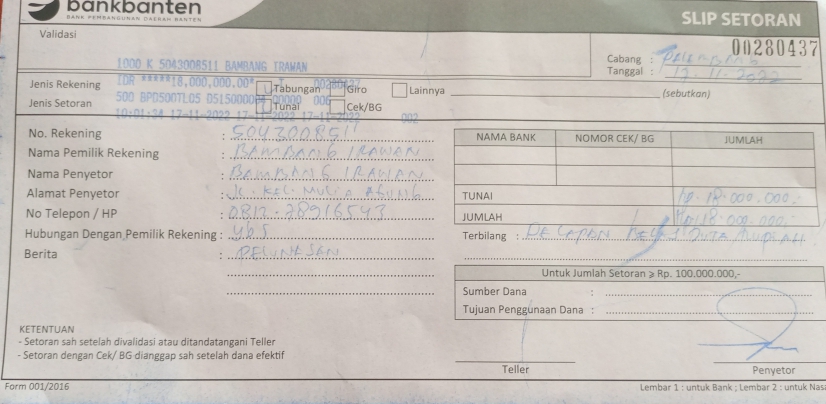 bankbanten
BANK PEMBANGUNAN DAERAH BANTEN
SLIP SETORAN
00280437
Validasi
1000 K 5043008511 BAMBANG IRAWAN
IDR *****18,000,000.00*
10:01:34 17-11-2022 17-11-2022 17-11-2022 002
Cabang : PALEMBANG
Tanggal : 17-11-2022
Jenis Rekening
Tabungan Giro Lainnya (sebutkan)
Jenis Setoran
Tunai Cek/BG
No. Rekening : 5043008511
Nama Pemilik Rekening : BAMBANG IRAWAN
Nama Penyetor : BAMBANG IRAWAN
Alamat Penyetor : JL. KEL. MULIA AGUNG
No Telepon / HP : 0812-28916543
Hubungan Dengan Pemilik Rekening : YBS
Berita : PELUNASAN
NAMA BANK NOMOR CEK/ BG JUMLAH
TUNAI Rp. 18.000.000.-
JUMLAH Rp. 18.000.000.-
Terbilang : DELAPAN BELAS JUTA RUPIAH
Untuk Jumlah Setoran ≥ Rp. 100.000.000,-
Sumber Dana :
Tujuan Penggunaan Dana :
KETENTUAN
- Setoran sah setelah divalidasi atau ditandatangani Teller
- Setoran dengan Cek/ BG dianggap sah setelah dana efektif
Teller
Penyetor
Form 001/2016
Lembar 1 : untuk Bank ; Lembar 2 : untuk Nasa